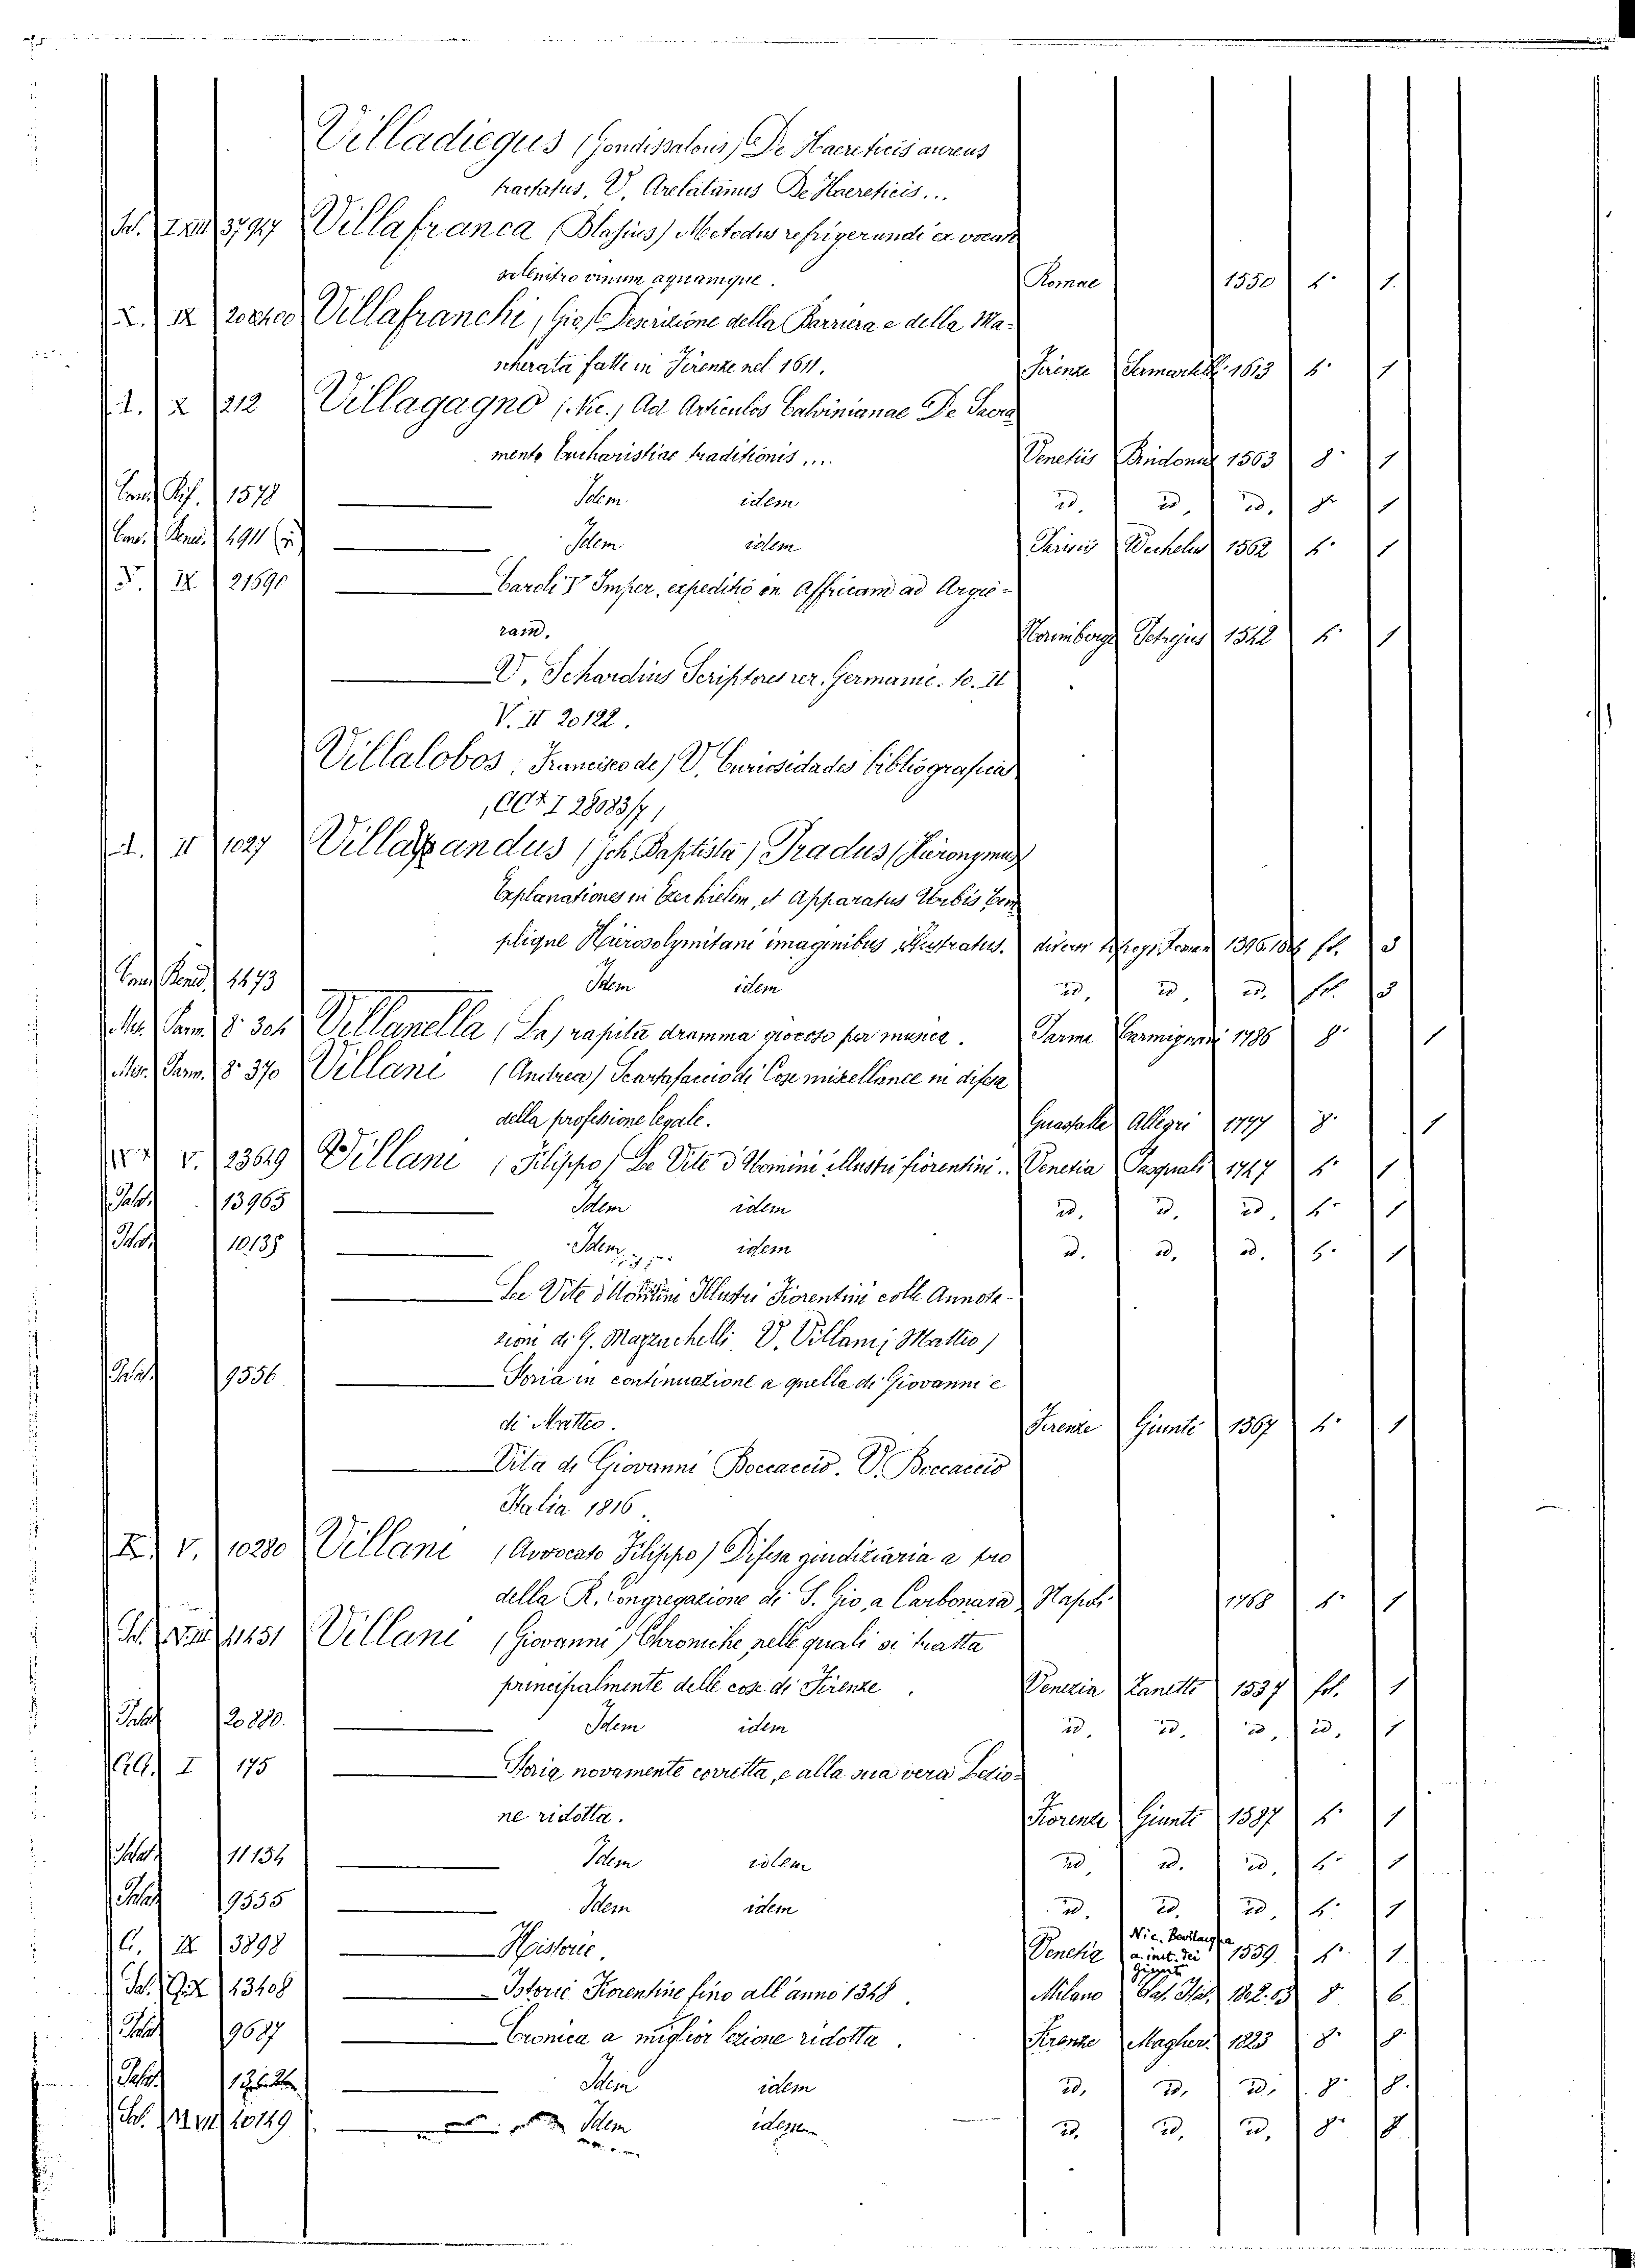 Villadiegus (Gondissalvus) De Haereticis aureus
tractatus, V. Arelatanus De Haereticis...
37947 Villafranca (Blasius) Metodus refrigerandi ex vocato
salenitro vinum aquamque. Romae 1550 4° 1.
IX Villafranchi (Gio.) Descrizione della Barriera e della Ma-
scherata fatte in Firenze nel 1611. Firenze 1613 4° 1
X 212 Villagagno (Nic.) Ad Articulos Calvinianae De Sacra
mento Eucharistiae traditionis .... Venetiis 1563 8° 1
1578 Idem idem id. id. id. 8° 1
4911 Idem idem Parisiis Wechelus 1562 4° 1
IX 21590 Caroli V Imper. expeditio in Affricam ad Argie-
ram. Petrejus 1542 4° 1
V. Schardius Scriptores rer. Germanic. to. II
V. II 20122.
Villalobos (Francisco de) V. Curiosidades bibliograficas
I 28083/7)
II 1027 Villalpandus (Joh. Baptista) Pradus (Hieronymus)
Explanationes in Ezechielem, et Apparatus Urbis Tem
plique Hierosolymitani imaginibus illustratus. fol. 3
1473 Idem idem id. id. id. fol. 3
Villanella (La) rapita dramma giocoso per musica. Parma Carmignani 1786 8° 1
8° 370 Villani (Andrea) Scartafaccio di Cose miscellanee in difesa
della professione legale. Guastalla Allegri 1797 8° 1
V. 23629 Villani (Filippo) Le Vite d'Uomini illustri fiorentini.. Venezia Pasquali 1747 4° 1
13965 Idem idem id. id. id. 4° 1
10138 Idem idem id. id. id. 4° 1
Le Vite d'Uomini Illustri Fiorentini colle Annota-
zioni di G. Mazzuchelli V. Villani (Matteo)
9556 Storia in continuazione a quella di Giovanni e
di Matteo. Firenze Giunti 1567 4° 1
Vita di Giovanni Boccaccio. V. Boccaccio
Italia 1816.
V. 10280 Villani (Avvocato Filippo) Difesa giudiziaria a pro
della R. Congregazione di S. Gio. a Carbonara Napoli 1768 4° 1
11451 Villani (Giovanni) Chroniche nelle quali si tratta
principalmente delle cose di Firenze. Venezia Zanetti 1537 fol. 1
20880. Idem idem id. id. id. id. 1
I 175 Storia novamente corretta, e alla sua vera Lezio-
ne ridotta. Fiorenza Giunti 1587 4° 1
11134 Idem idem id. id. id. 4° 1
9555 Idem idem id. id. id. 4° 1
IX 3898 Historie. Venetia Nic. Bevilacqua a inst. dei Giunti 1559 4° 1
13408 Istorie Fiorentine fino all'anno 1348. Milano 8° 6.
9687 Cronica a miglior lezione ridotta. Firenze Magheri 1823 8° 8.
Idem idem id. id. id. 8° 8.
10149 Idem idem id. id. id. 8° 8